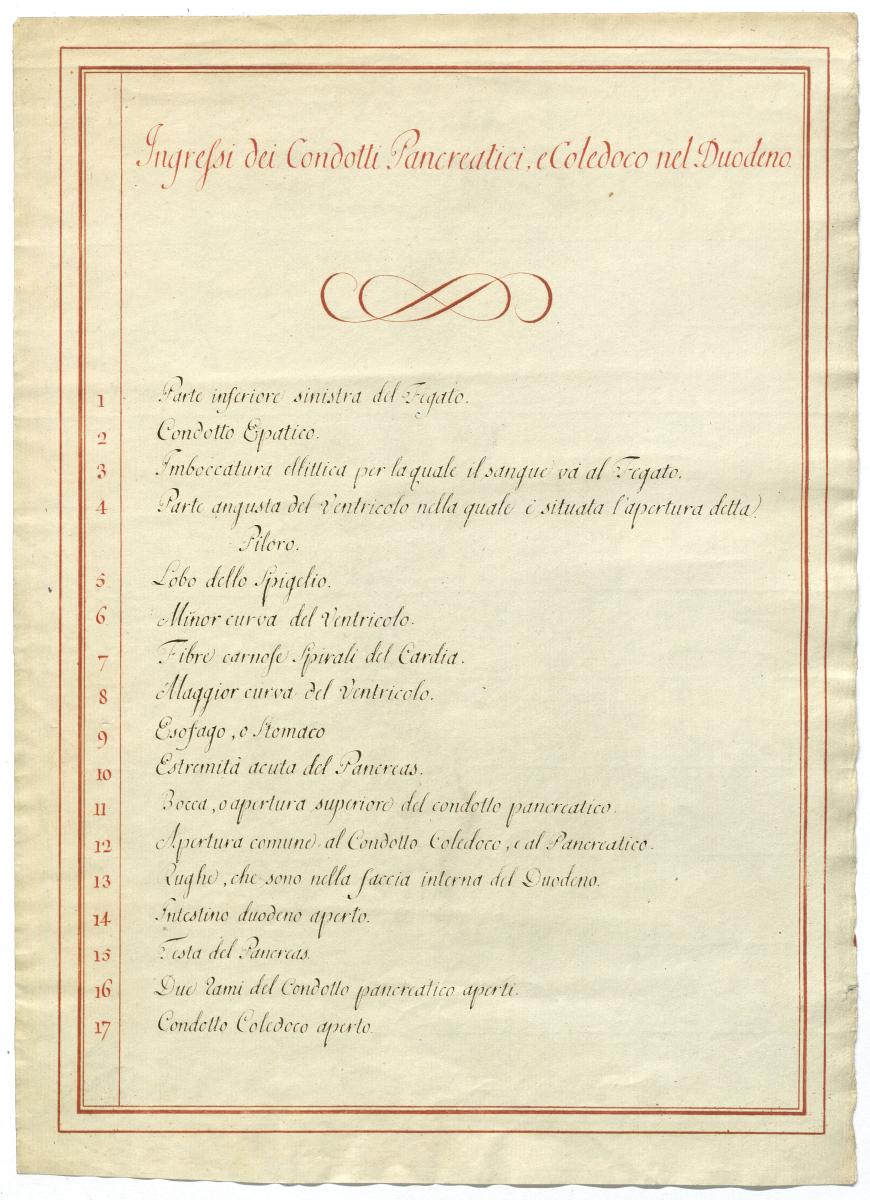 Ingreſsi dei Condotti Pancreatici, e Coledoco nel Duodeno.
1 Parte inferiore sinistra del Fegato.
2 Condotto Epatico.
3 Imboccatura ellittica per la quale il sangue và al Fegato.
4 Parte angusta del Ventricolo nella quale è situata l'apertura detta
Piloro.
5 Lobo dello Spigelio.
6 Minor curva del Ventricolo.
7 Fibre carnoſe Spirali del Cardia.
8 Maggior curva del Ventricolo.
9 Esofago, o Stomaco
10 Estremità acuta del Pancreas.
11 Bocca, o apertura superiore del condotto pancreatico.
12 Apertura comune al Condotto Coledoco, e al Pancreatico.
13 Rughe, che sono nella faccia interna del Duodeno.
14 Intestino duodeno aperto.
15 Testa del Pancreas.
16 Due rami del Condotto pancreatico aperti.
17 Condotto Coledoco aperto.